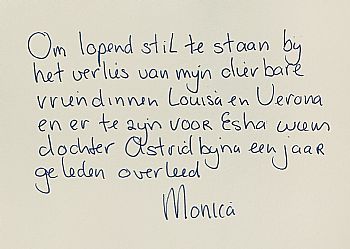 Om lopend stil te staan bij
het verlies van mijn dierbare
vriendinnen Louisa en Verona
en er te zijn voor Esha wiens
dochter Astrid bijna een jaar
geleden overleed
Monica